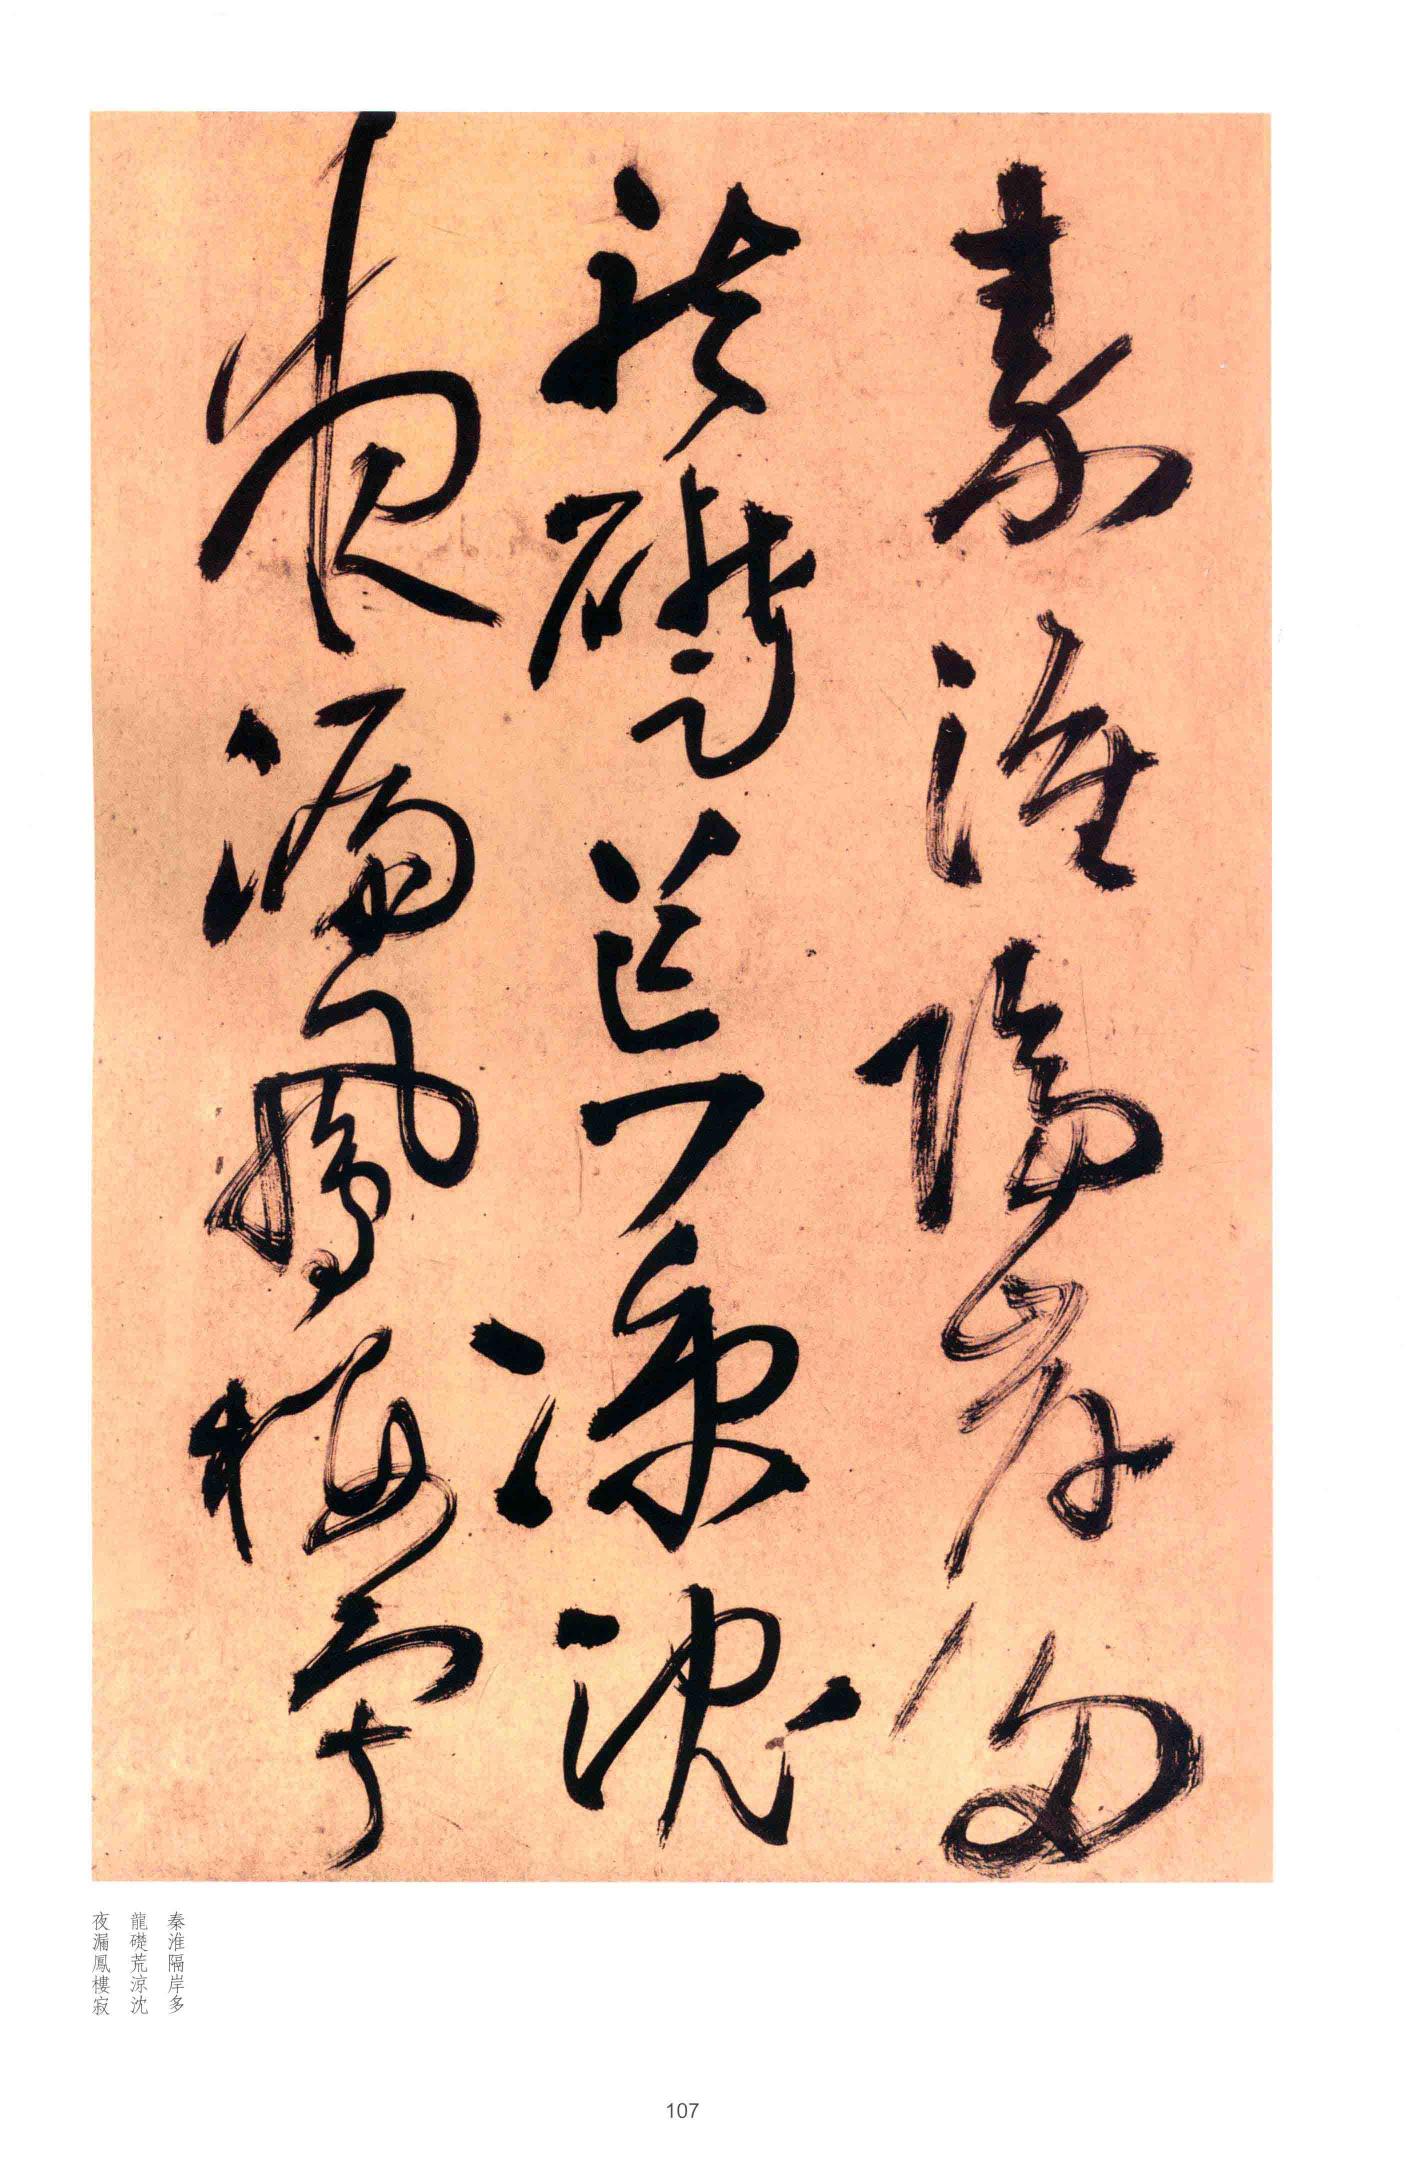 秦淮隔岸多
龍礎荒涼沈
夜漏鳳樓寂
秦淮隔岸多
龍礎荒涼沈
夜漏鳳樓寂
107